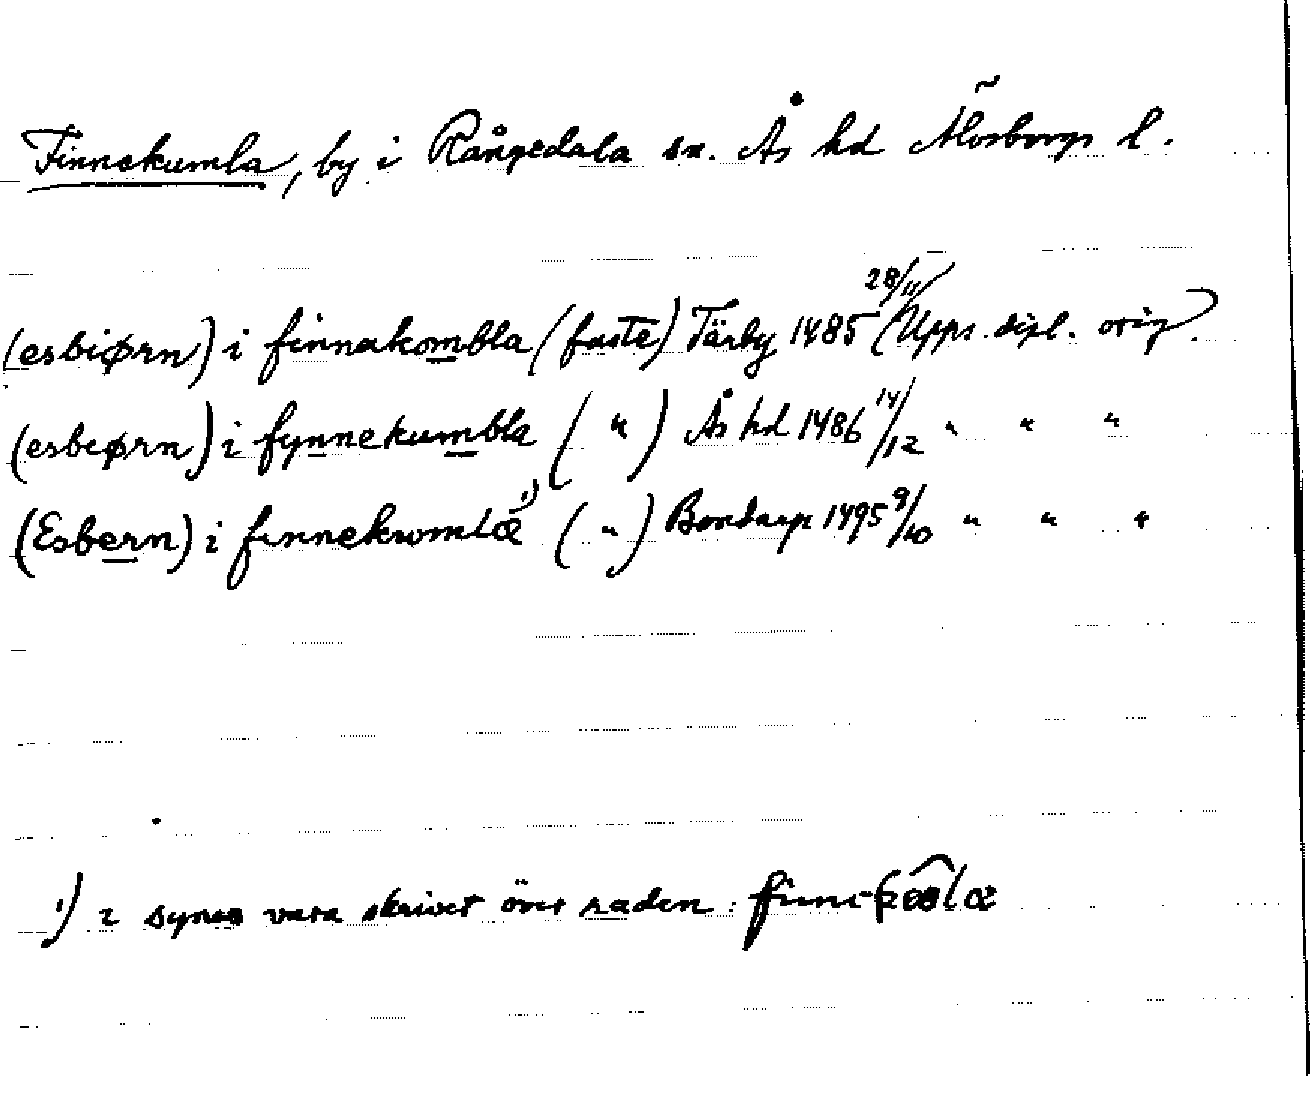 Finnekumla, by i Rångedala sn. Ås hd Älvsborgs l.
(esbiørn) i finnakombla (fastē) Tärby 1485 28/11 (Upps. dipl. orig.)
(esbiørn) i fynnekumbla ( " ) Ås hd 1486 14/12 " " "
(Esbern) i finnekromlæ 1) ( " ) Bondarp 1495 9/10 " " "
1) r synes vara skrivet över raden: